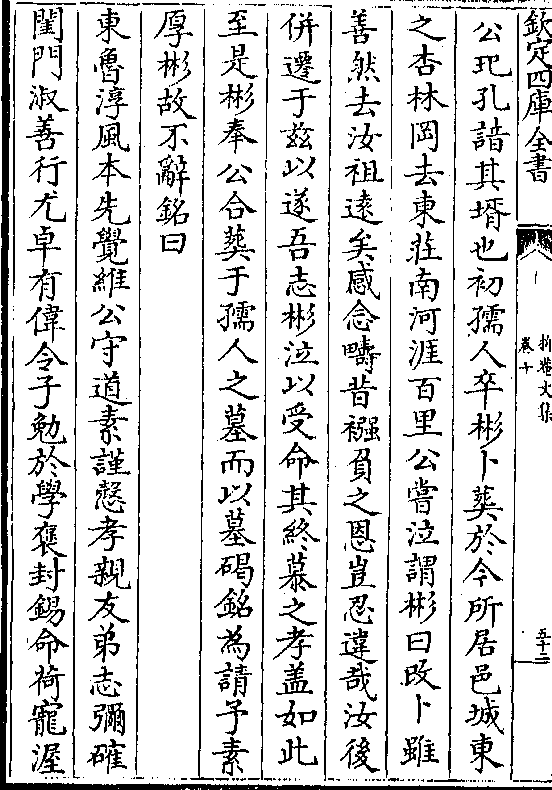 欽定四庫全書
折菴文集
卷十
五十二
公玘孔諳其壻也初孺人卒彬卜葬於今所居邑城東
之杏林岡去東莊南河涯百里公嘗泣謂彬曰改卜雖
善然去汝祖逺矣感念疇昔襁負之恩豈忍違哉汝後
併遷于兹以遂吾志彬泣以受命其終慕之孝盖如此
至是彬奉公合葬于孺人之墓而以墓碣銘為請予素
厚彬故不辭銘曰
東魯淳風本先覺維公守道素謹慤孝親友弟志彌確
閨門淑善行尤卓有偉令子勉於學褒封錫命荷寵渥